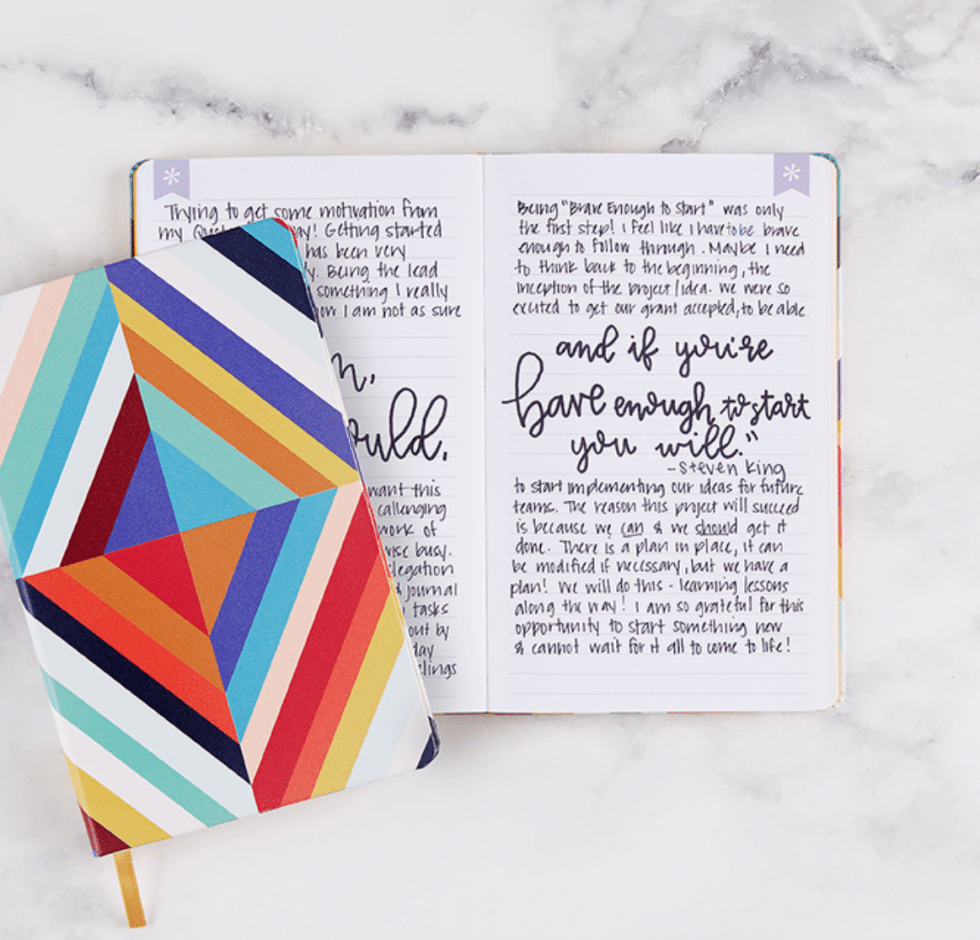 Trying to get some motivation from
my ay! Getting started
has been very
y. Being the lead
something I really
now I am not as sure
n,
ould,
want this
callenging
work of
wise busy.
legation
journal
tasks
out by
day
elings
Being "Brave Enough to Start" was only
the first step! I feel like I have to be brave
enough to follow through. Maybe I need
to think back to the beginning, the
inception of the project/idea. We were so
excited to get our grant accepted, to be able
and if you're
brave enough to start
you will."
-Steven King
to start implementing our ideas for future
teams. The reason this project will succeed
is because we can & we should get it
done. There is a plan in place, it can
be modified if necessary, but we have a
plan! We will do this - learning lessons
along the way! I am so grateful for this
opportunity to start something new
& cannot wait for it all to come to life!